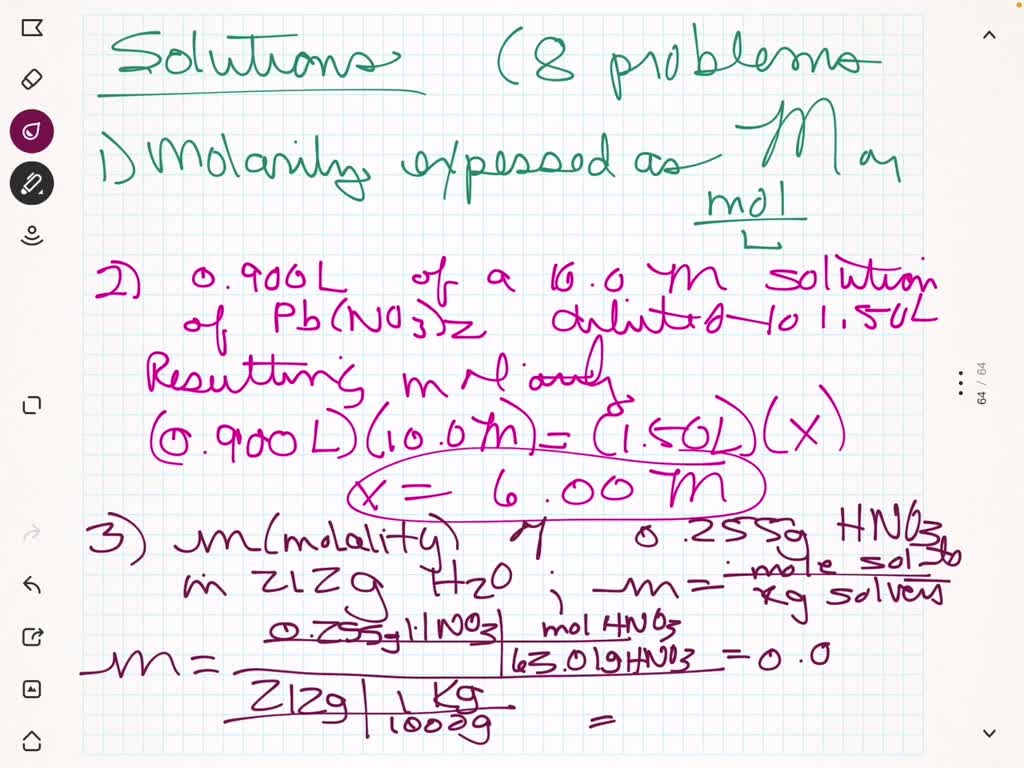 Solutions (8 problems
1) Molarity expessed as M or
mol
L
2) 0.900L of a 10.0 M solution
of Pb(NO3)2 diluted to 1.50L
Resulting molarity
(0.900L)(10.0M) = (1.50L)(X)
x = 6.00 M
3) m(molality) of 0.255g HNO3
in 212g H2O ; m = mole solute
kg solvent
0.255g HNO3 | mol HNO3
m = 63.01g HNO3 = 0.0
212g | 1 kg
1000g =
64 / 64